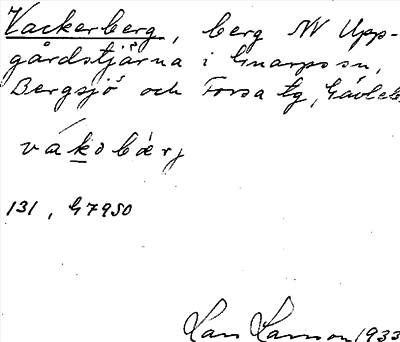 Vackerberg, berg NV Upp-
gårdstjärna i Gnarps sn,
Bergsjö och Forsa tg, Gävleb.
våkobærj
131, G7950
Lars Larsson 1933